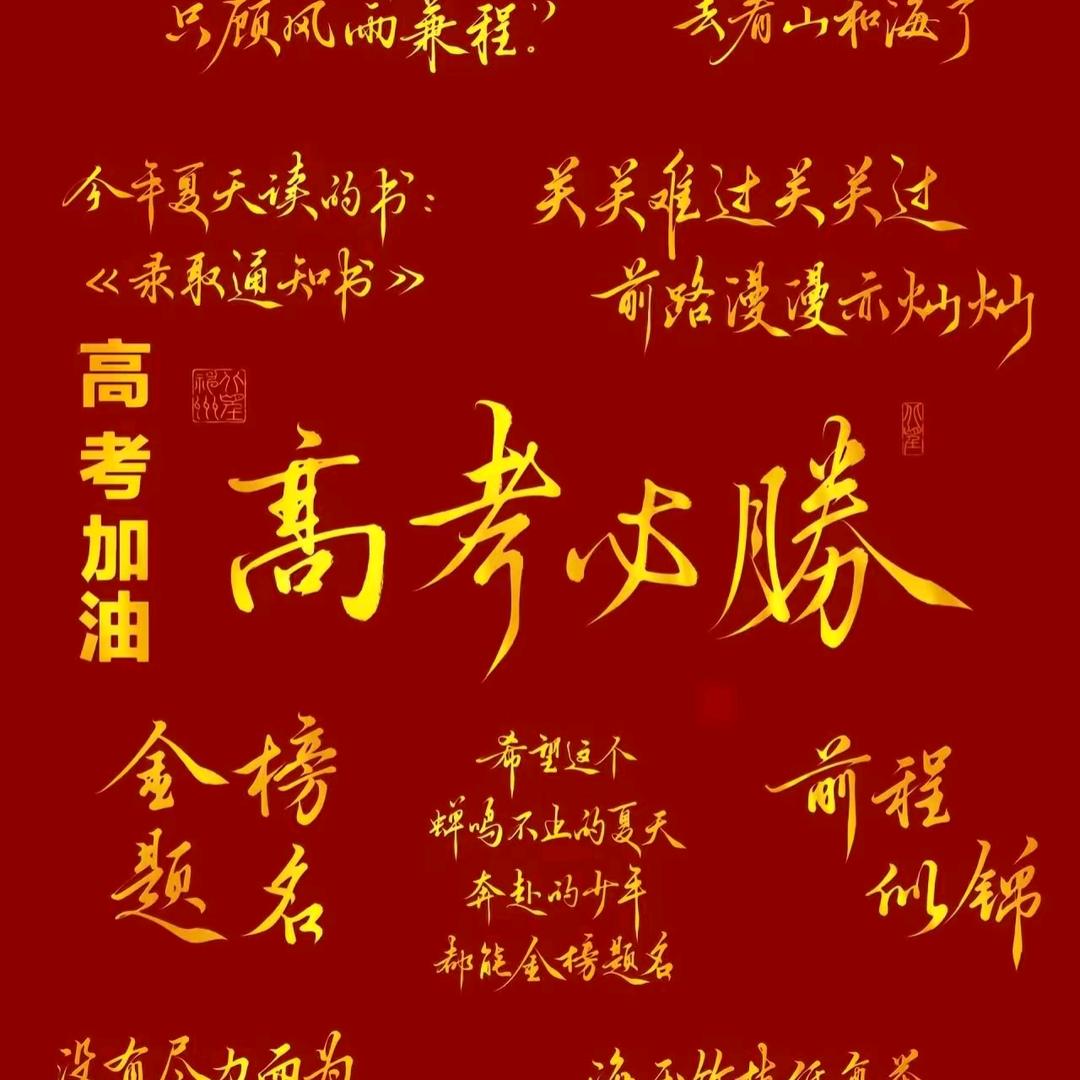 只顾风雨兼程。”
去看山和海了
今年夏天读的书：
《录取通知书》
关关难过关关过
前路漫漫亦灿灿
高考加油
高考必勝
金榜
题名
希望这个
蝉鸣不止的夏天
奔赴的少年
都能金榜题名
前程
似锦
没有尽力而为